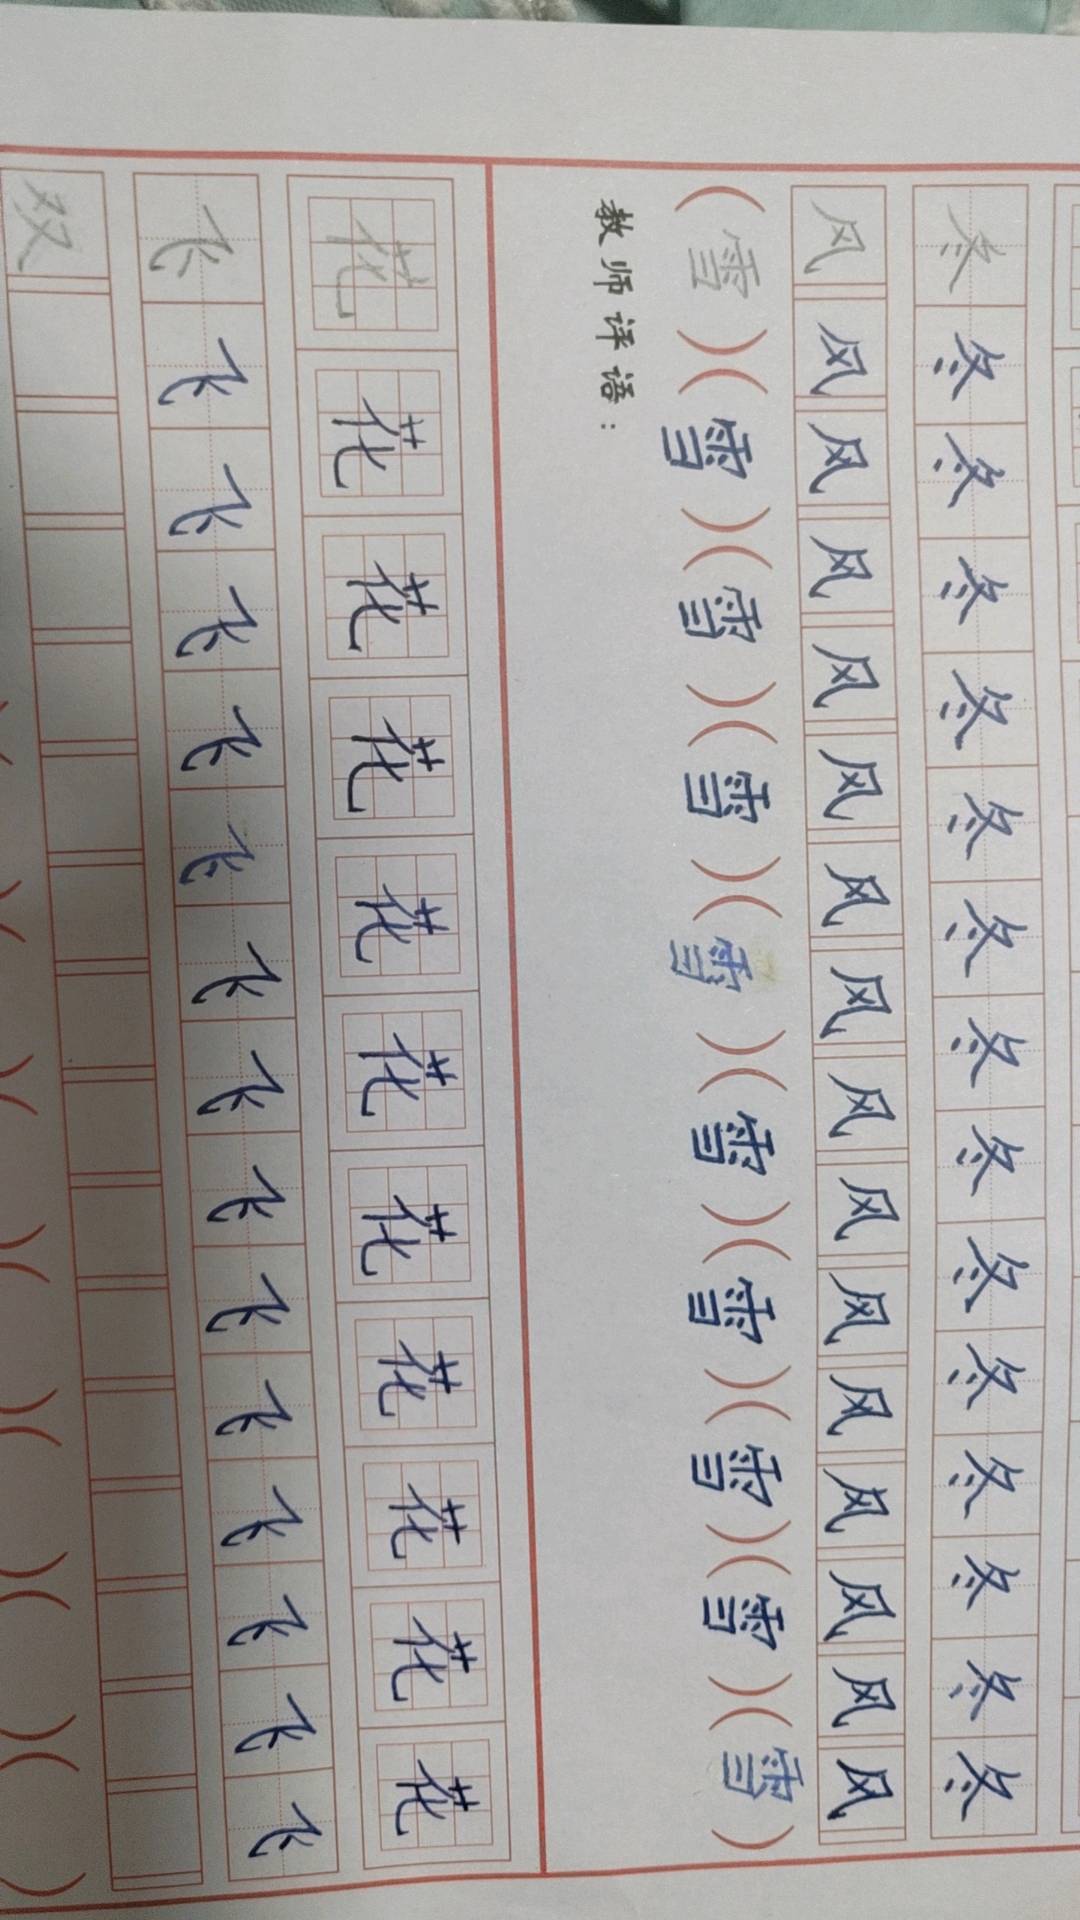 冬冬冬冬冬冬冬冬冬冬冬冬冬冬冬
风风风风风风风风风风风风风风风风
(雪)(雪)(雪)(雪)(雪)(雪)(雪)(雪)(雪)(雪)
教师评语：
花花花花花花花花花花花
飞飞飞飞飞飞飞飞飞飞飞飞飞飞飞
双